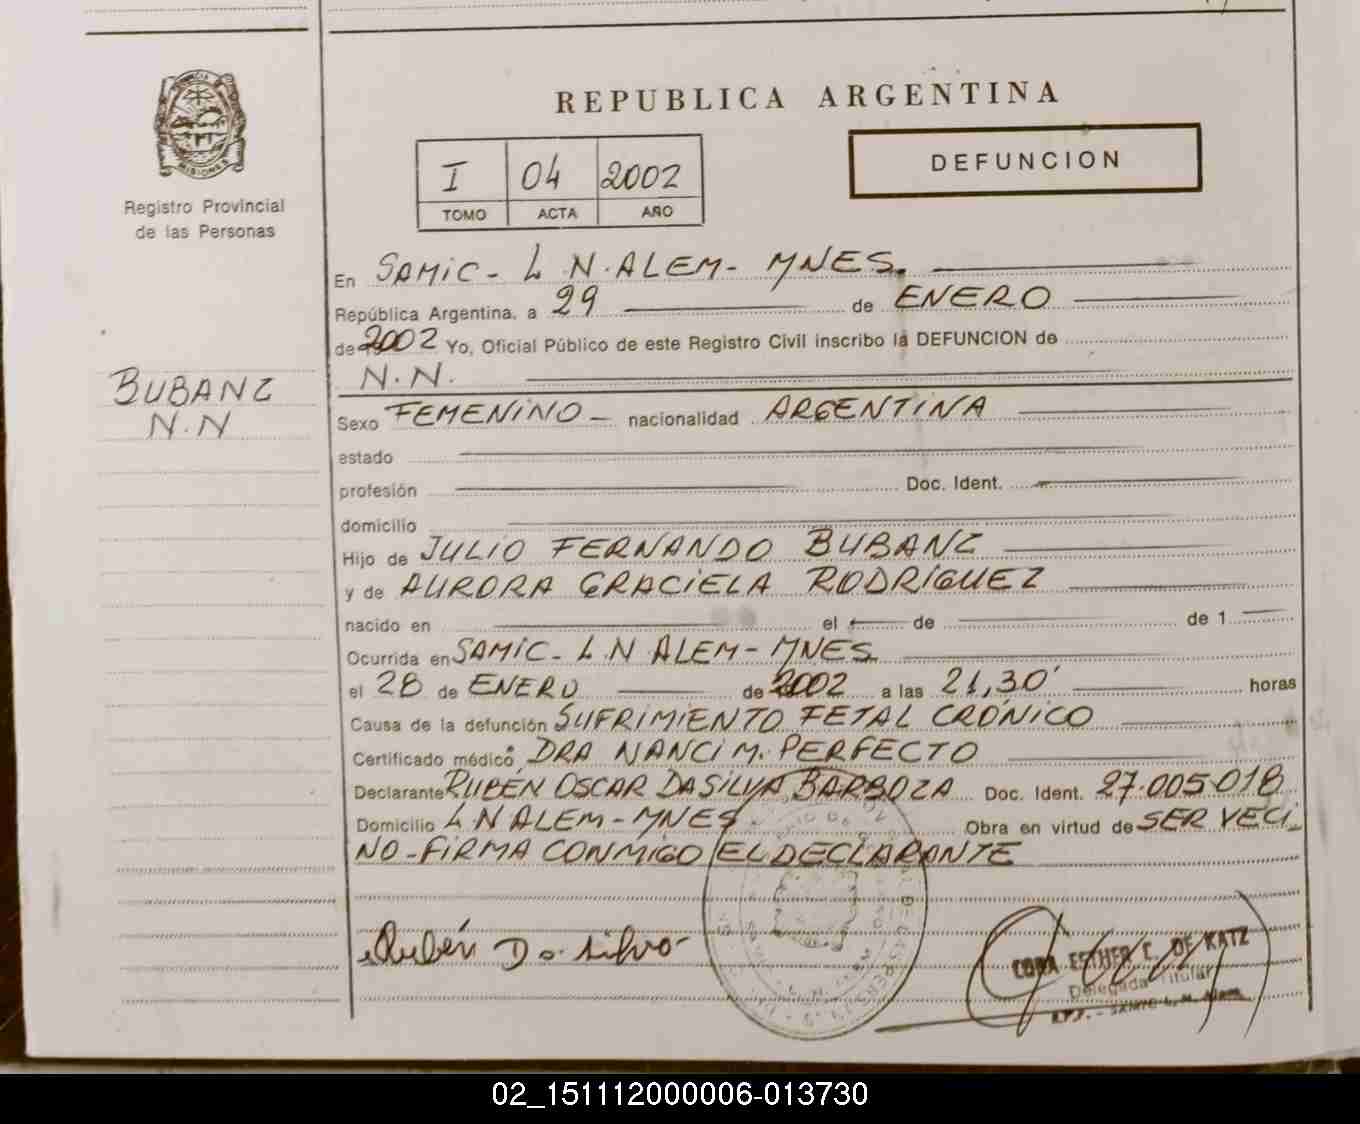 REPUBLICA ARGENTINA
DEFUNCION
I 04 2002
TOMO ACTA AÑO
MISIONES
Registro Provincial
de las Personas
BUBANZ
N.N
En SAMIC - L N. ALEM - MNES.
República Argentina, a 29 de ENERO
de 2002 Yo, Oficial Público de este Registro Civil inscribo la DEFUNCION de
N.N.
Sexo FEMENINO - nacionalidad ARGENTINA
estado
profesión Doc. Ident.
domicilio
Hijo de JULIO FERNANDO BUBANZ
y de AURORA GRACIELA RODRIGUEZ
nacido en el de de 1
Ocurrida en SAMIC - L N ALEM - MNES
el 28 de ENERO de 2002 a las 21,30' horas
Causa de la defunción SUFRIMIENTO FETAL CRÓNICO
Certificado médico DRA NANCI M. PERFECTO
Declarante RUBÉN OSCAR DA SILVA BARBOZA Doc. Ident. 27.005.018
Domicilio L N ALEM - MNES Obra en virtud de SER VECI_
NO - FIRMA CONMIGO EL DECLARANTE
Rubén Da Silva
CORA ESTHER C. DE KATZ
Delegada Titular
R.P.P. - SAMIC L. N. Alem
02_151112000006-013730